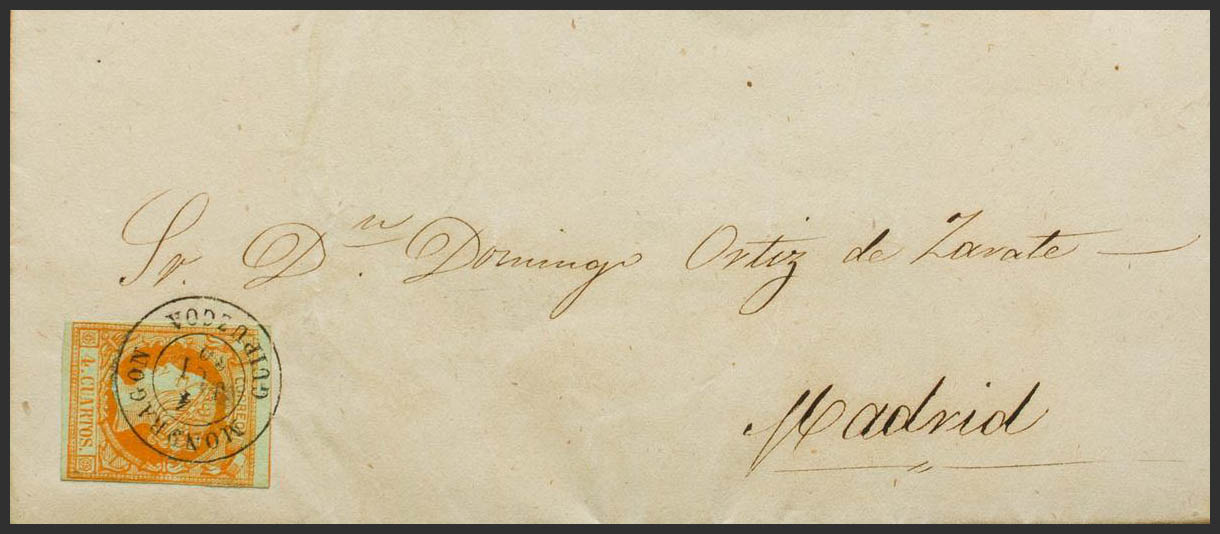 Sr. Dn. Domingo Ortiz de Zarate
Madrid
4 CUARTOS.
MONDRAGON
GUIPUZCOA